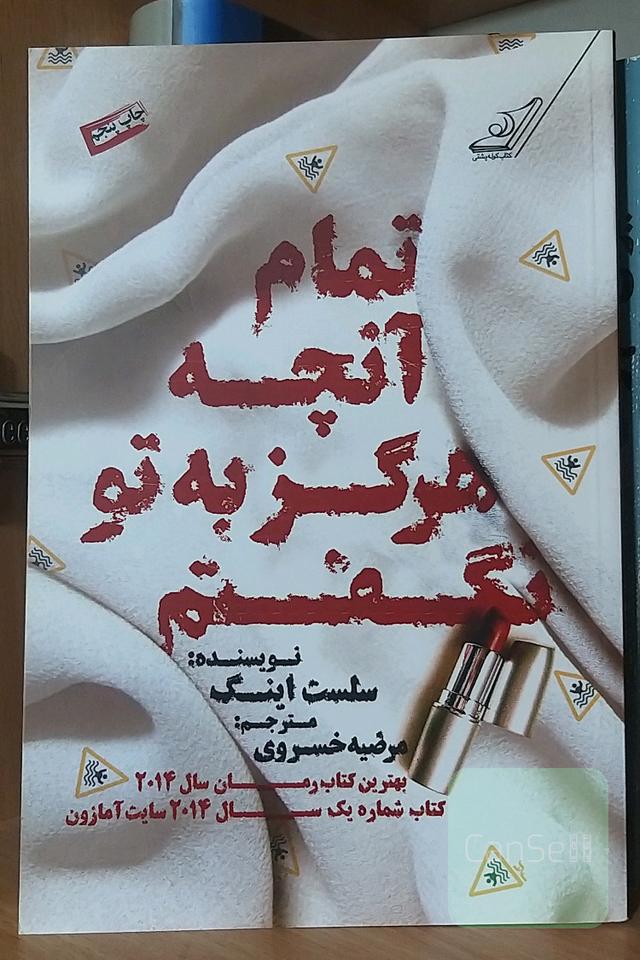 چاپ پنجم
کتاب کوله‌پشتی
تمام
آنچه
هرگز به تو
نگفتم
نویسنده:
سلست اینگ
مترجم:
مرضیه خسروی
بهترین کتاب رمان سال ۲۰۱۴
کتاب شماره یک سال ۲۰۱۴ سایت آمازون